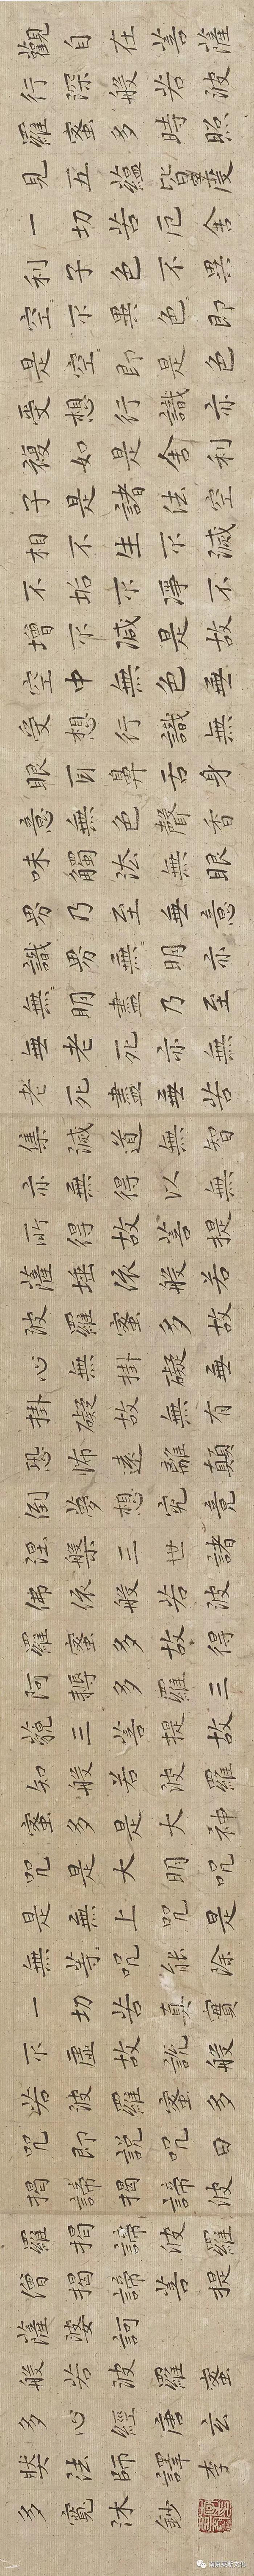 觀自在菩薩
行深般若波
羅蜜多時照
見五蘊皆空度
一切苦厄舍
利子色不異
空不異色即
是空即是色
受想行識亦
複如是舍利
子是諸法空
相不生不滅
不垢不淨不
增不減是故
空中無色無
受想行識無
眼耳鼻舌身
意無色聲香
味觸法無眼
界乃至無意
識界無明亦
無明盡乃至
無老死亦無
老死盡無苦
集滅道無智
亦無得以無
所得故菩提
薩埵依般若
波羅蜜多故
心無掛礙無
掛礙故無有
恐怖遠離顛
倒夢想究竟
涅槃三世諸
佛依般若波
羅蜜多故得
阿耨多羅三
藐三菩提故
知般若波羅
蜜多是大神
咒是大明咒
是無上咒是
無等咒能除
一切苦真實
不虛故說般
若波羅蜜多
咒即說咒曰
揭諦揭諦波
羅揭諦波羅
僧揭諦菩提
薩婆訶
般若波羅蜜
多心經唐玄
奘法師譯李
多寬沐鈔